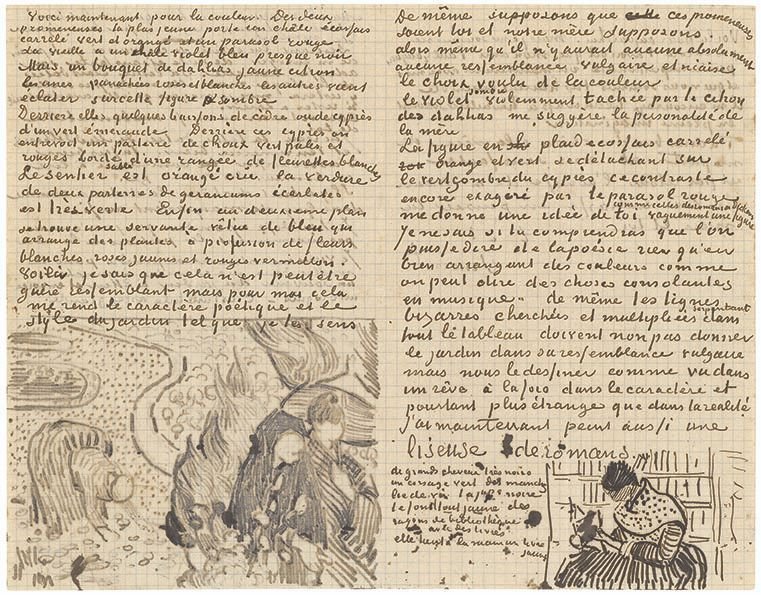 Voici maintenant pour la couleur. Des deux
promeneuses la plus jeune porte un châle écossais
carrelé vert et orangé et un parasol rouge
La vieille a un châle violet bleu presque noir
Mais un bouquet de dahlias jaune citron
les unes panachées roses et blanches les autres vient
éclater sur cette figure sombre
Derrière elles quelques buissons de cèdre ou de cyprès
d'un vert émeraude Derrière ces cyprès on
entrevoit un parterre de choux vert pales et
rouges bordé d'une rangée de fleurettes blanches
Le sentier sablé est orangé cru la verdure
de deux parterres de géraniums écarlates
est très verte Enfin au deuxieme plan
se trouve une servante vêtue de bleu qui
arrange des plantes à profusion de fleurs
blanches, roses, jaunes et rouges vermillon.
Voilà je sais que cela n'est peut être
guère ressemblant mais pour moi cela
me rend le caractère poétique et le
style du jardin tel que je les sens
De même supposons que ces promeneuses
soient toi et notre mère supposons.
alors même qu'il n'y aurait aucune absolument
aucune ressemblance vulgaire et niaise
le choix voulu de la couleur
le violet sombre violemment tachée par le citron
des dahlias me suggère la personalité de
la mère.
La figure en plaid ecossais carrelé
orange et vert se détachant sur
le vert sombre du cyprès ce contraste
encore exageré par le parasol rouge
me donne une idée de toi vaguement une figure
comme celles des romans de
Je ne sais si tu comprendras que l'on
puisse dire de la poésie rien qu'en
bien arrangeant des couleurs comme
on peut dire des choses consolantes
en musique. de même les lignes
bizarres cherchées et multipliées serpentant dans
tout le tableau doivent non pas donner
le jardin dans sa ressemblance vulgaire
mais nous le dessiner comme vu dans
un rêve à la fois dans le caractère et
pourtant plus étrange que dans la réalité
J'ai maintenant peint aussi une
liseuse de romans.
de grands cheveux très noirs
un corsage vert des manches
lie de vin la jupe noire
le fond tout jaune des
rayons de bibliothèque
avec des livres
elle tient à la main un livre
jaune